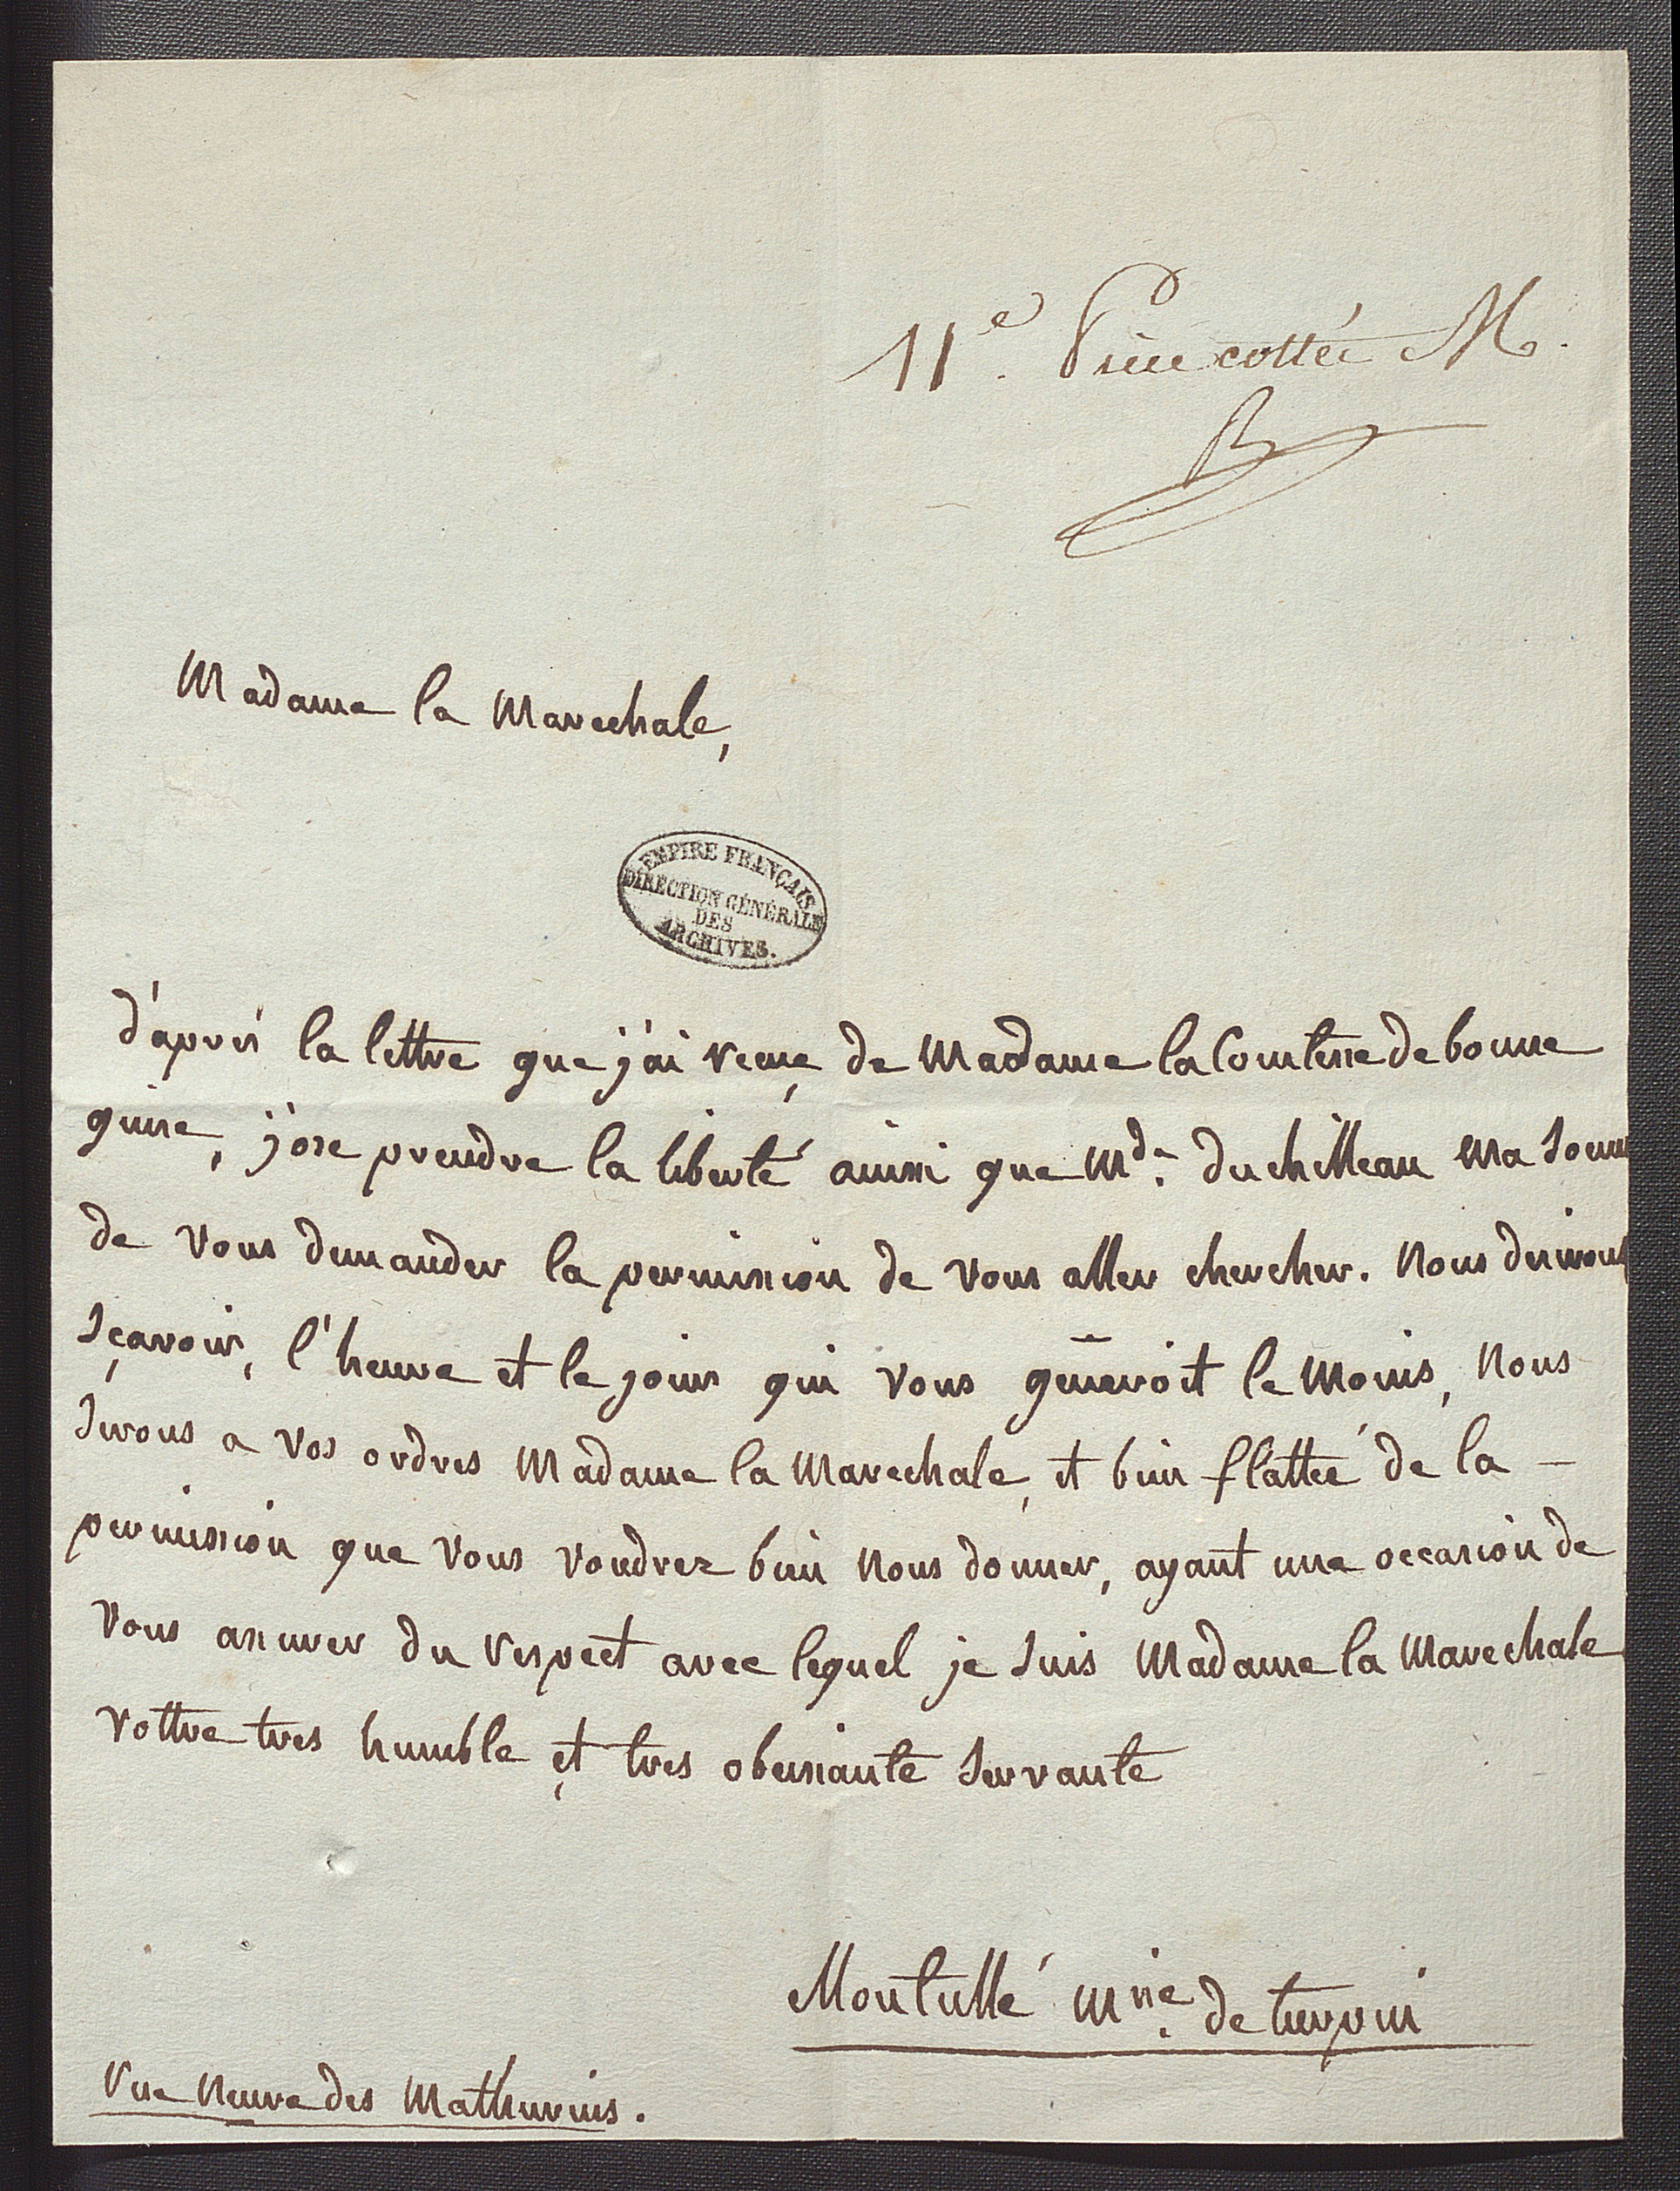 11e. Piece cottée M.
Madame la Marechale,
EMPIRE FRANÇAIS
DIRECTION GÉNÉRALE
DES
ARCHIVES.
d'après la lettre que j'ai recue de Madame la Comtesse de bonne
guise, j'ose prendre la liberté ainssi que Mde. duchilleau Ma soeur
de vous demander la permission de vous aller chercher. Nous desirons
sçavoir, l'heure et le jour qui vous gêneroit le Moins, Nous
serons a vos ordres Madame la Marechale, et bien flatteé de la -
permission que vous voudrez bien Nous donner, ayant une occasion de
vous assurer du respect avec lequel je suis Madame la Marechale
vottre tres humble et tres obeissante servante
Montullé Mise. de turpin
rue Neuve des Mathurins.